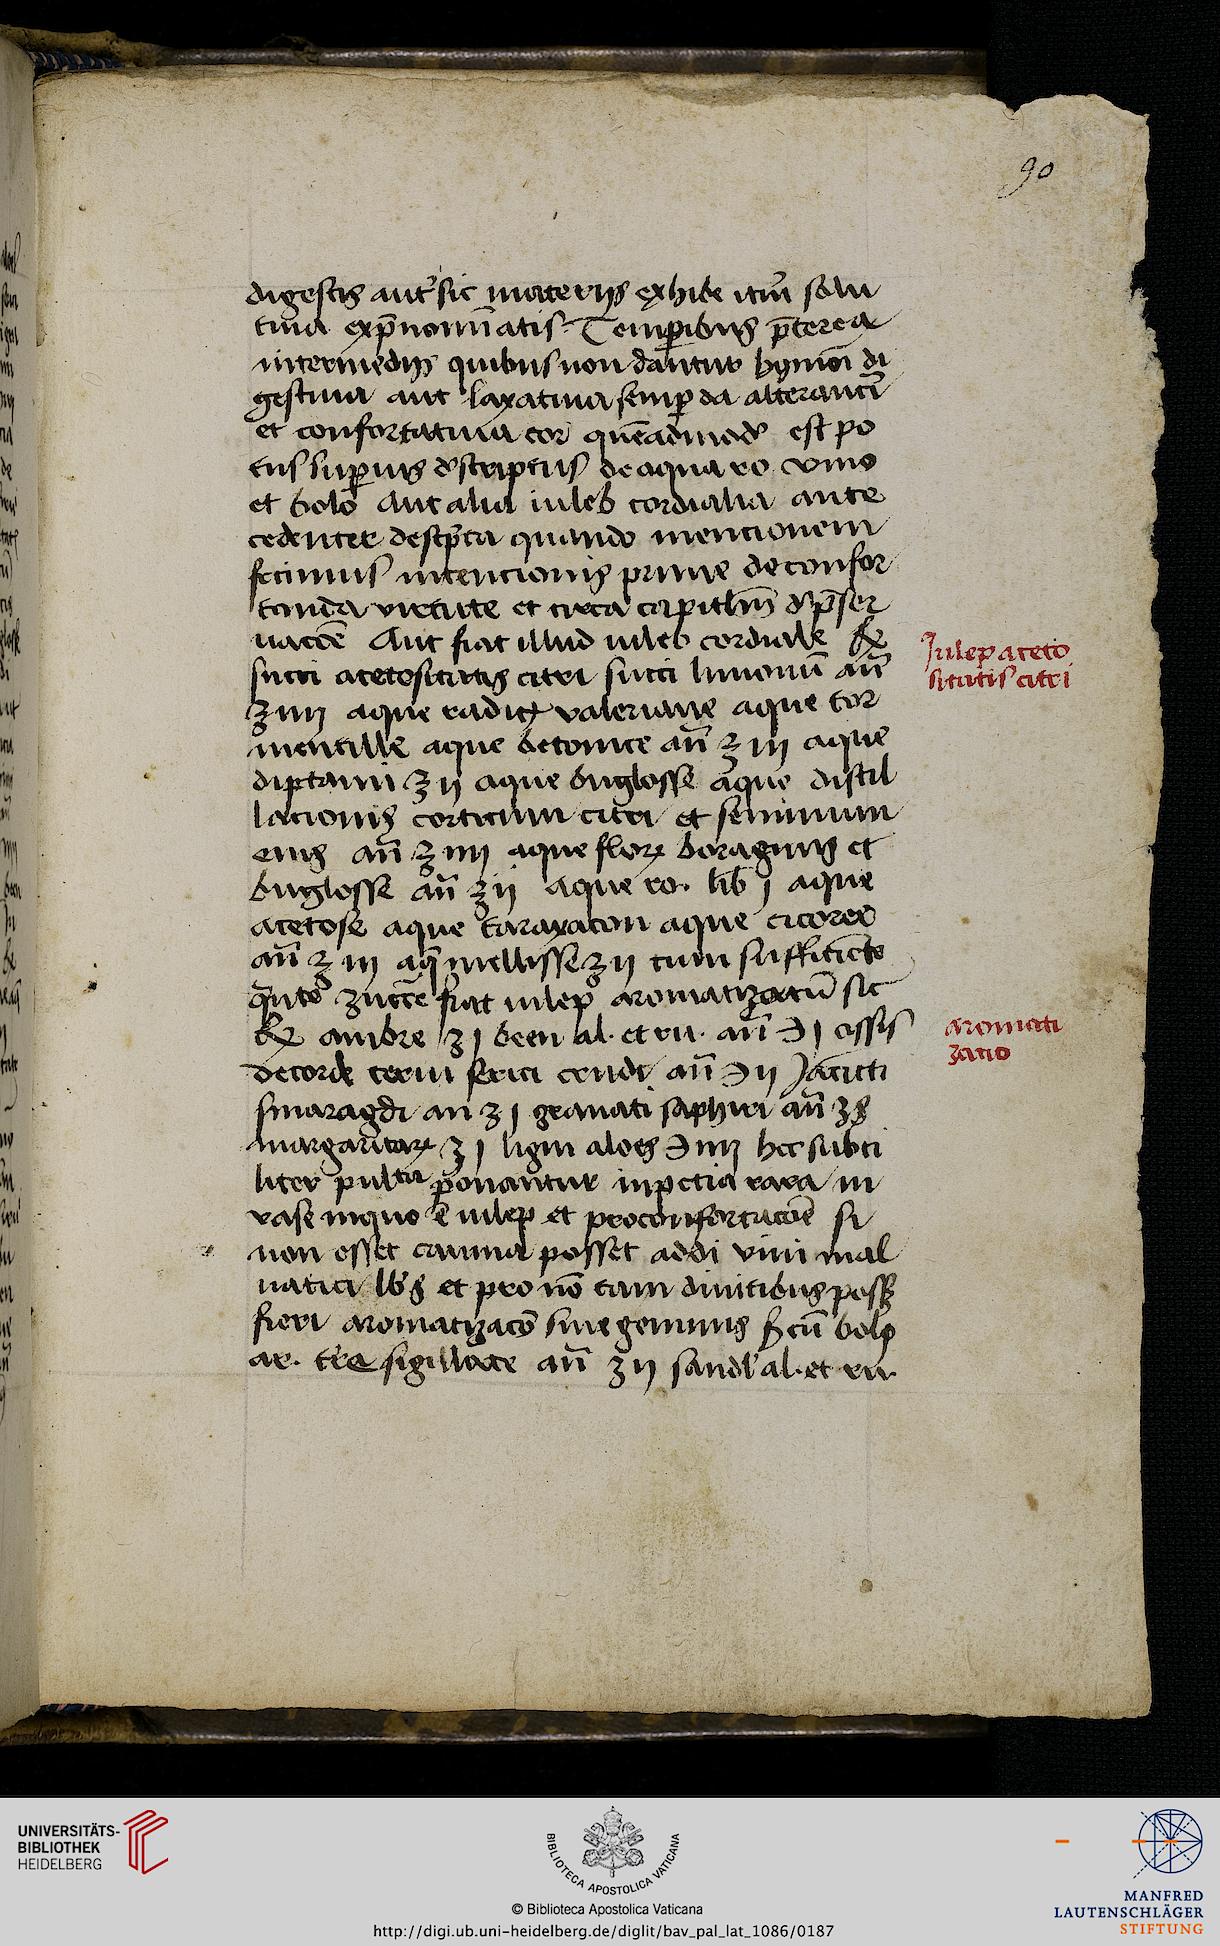 90
digestis aut̃ sic materijs exhibe itm̄ solu
tiua exp̄nominatis. Temporibus p̄terea
intermedijs quibus non dantur hmōi di
gestiua aut laxatiua semper da alterancia
et confortatiua cor quēadmodū est po
tus superius descriptus de aqua ro. vino
et bolo Aut alia iuleb cordialia ante
cedenter descp̄ta quando mentionem
fecimus intencionis prime de confor
tanda virtute et circa
uacōē Aut fiat illud iuleb cordiale ℞
succi acetositatis citri succi limonū an̄
ʒ iiij aque radicꝭ valeriane aque tor
mentille aque betonice an̄ ʒ iij aque
diptami ʒ ij aque buglosse aque distil
lacionis corticum citri et seminum
eius an̄ ʒ iiij aque florꝝ boraginis et
buglosse an̄ ʒ ij aque ro. lib j aque
acetose aque taraxacon aque cicoree
an̄ ʒ iij aq̄ mellisse ʒ ij cum sufficiēte
q̄nto zuccē fiat iulep aromatizatū sic
℞ ambre ʒ j been al. et ru. an̄ ℈ j ossis
de corde cerui serici crudi an̄ ℈ ij Jacīcti
smaragdi an ʒ j granati saphiri an̄ ʒ ß
margaritarꝝ ʒ j ligni aloes ℈ iiij hec subti
liter pulta ponantur in petia rara in
vase in quo ē iulep et pro confortacōē si
non esset carina posset addi vini mal
uatici lb ß et pro nō tam diuitibus possꝫ
fieri aromatizacō sine gemmis s; cū bolo
ar. tr̄a sigillate an̄ ʒ ij sandl' al. et ru.
Julep aceto
sitatis citri
aromati
zatio
UNIVERSITÄTS-
BIBLIOTHEK
HEIDELBERG
BIBLIOTECA APOSTOLICA VATICANA
© Biblioteca Apostolica Vaticana
http://digi.ub.uni-heidelberg.de/diglit/bav_pal_lat_1086/0187
MANFRED
LAUTENSCHLÄGER
STIFTUNG